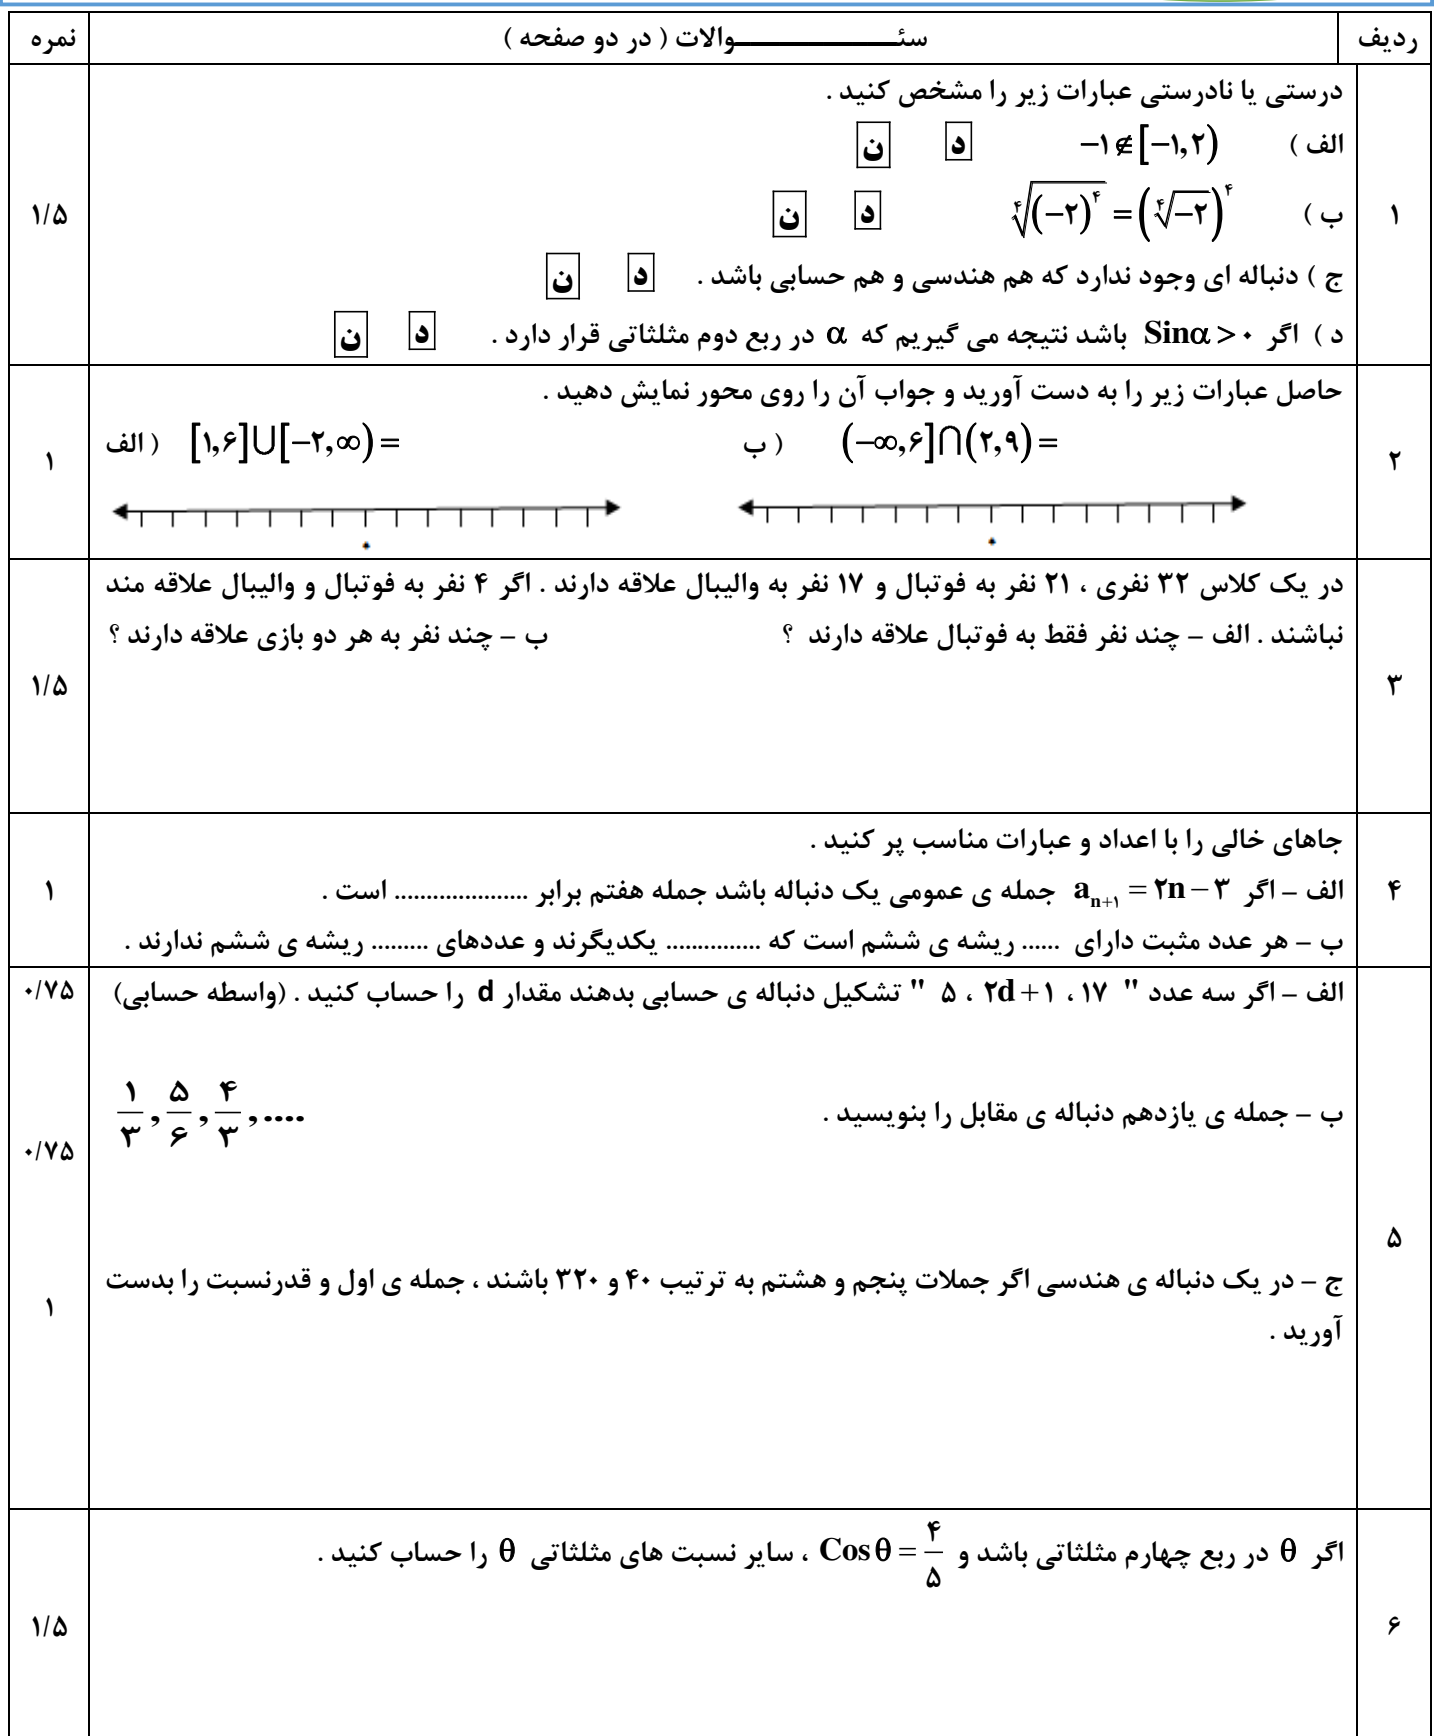 ردیف سئـــــــــــــــوالات ( در دو صفحه ) نمره
درستی یا نادرستی عبارات زیر را مشخص کنید .
الف ) −۱ ∉ [−۱,۲) د ن
۱ ب ) ∜((−۲)^۴) = (∜(−۲))^۴ د ن ۱/۵
ج ) دنباله ای وجود ندارد که هم هندسی و هم حسابی باشد . د ن
د ) اگر Sinα > ۰ باشد نتیجه می گیریم که α در ربع دوم مثلثاتی قرار دارد . د ن
حاصل عبارات زیر را به دست آورید و جواب آن را روی محور نمایش دهید .
۲ ب ) (−∞,۶]∩(۲,۹) = الف ) [۱,۶]∪[−۲,∞) = ۱
۰ ۰
در یک کلاس ۳۲ نفری ، ۲۱ نفر به فوتبال و ۱۷ نفر به والیبال علاقه دارند . اگر ۴ نفر به فوتبال و والیبال علاقه مند
نباشند . الف – چند نفر فقط به فوتبال علاقه دارند ؟ ب – چند نفر به هر دو بازی علاقه دارند ؟
۳ ۱/۵
جاهای خالی را با اعداد و عبارات مناسب پر کنید .
۴ الف – اگر a_{n+۱} = ۲n − ۳ جمله ی عمومی یک دنباله باشد جمله هفتم برابر ..................... است . ۱
ب – هر عدد مثبت دارای ...... ریشه ی ششم است که ............... یکدیگرند و عددهای ......... ریشه ی ششم ندارند .
الف – اگر سه عدد " ۱۷ ، ۲d+۱ ، ۵ " تشکیل دنباله ی حسابی بدهند مقدار d را حساب کنید . (واسطه حسابی) ۰/۷۵
ب – جمله ی یازدهم دنباله ی مقابل را بنویسید . ۱/۳ , ۵/۶ , ۴/۳ , .... ۰/۷۵
۵
ج – در یک دنباله ی هندسی اگر جملات پنجم و هشتم به ترتیب ۴۰ و ۳۲۰ باشند ، جمله ی اول و قدرنسبت را بدست ۱
آورید .
اگر θ در ربع چهارم مثلثاتی باشد و Cos θ = ۴/۵ ، سایر نسبت های مثلثاتی θ را حساب کنید .
۶ ۱/۵